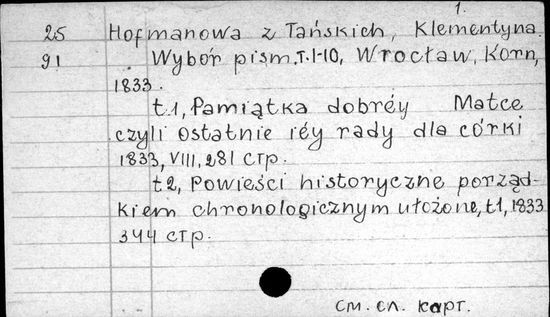 1.
25 Hofmanowa z Tańskich, Klementyna.
91 Wybór pism. T. I-10, Wrocław, Korn,
1833.
t1, Pamiątka dobréy Matce
czyli ostatnie iéy rady dla córki
1833, VIII, 281 стр.
t2, Powieści historyczne porząd-
kiem chronologicznym ułożone, t1, 1833
344 стр.
см. сл. карт.